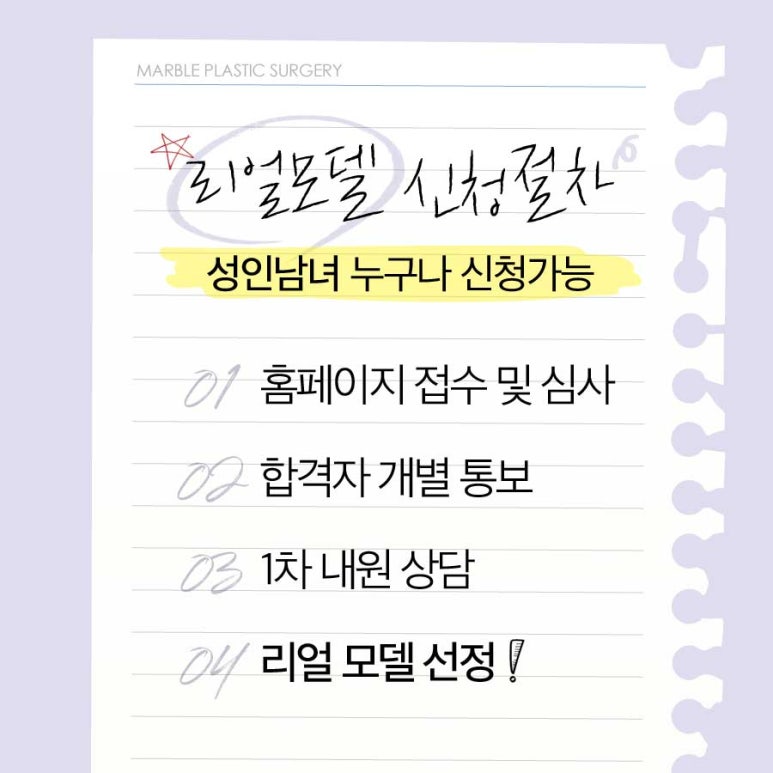 MARBLE PLASTIC SURGERY
리얼모델 신청절차
성인남녀 누구나 신청가능
01 홈페이지 접수 및 심사
02 합격자 개별 통보
03 1차 내원 상담
04 리얼 모델 선정!